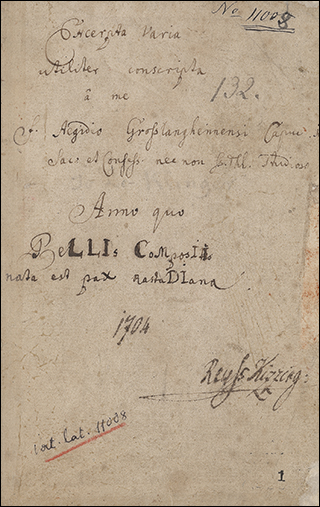 No 11008
Excerpta Varia
utiliter conscripta
â me 132.
F. Aegidio Groslangheimensi Capuc.
Sac. et Confess. nec non
Anno quo
BeLLIs CoMposItIs
nata est pax rastaDIana
1704
cvt. lat. 11008
1